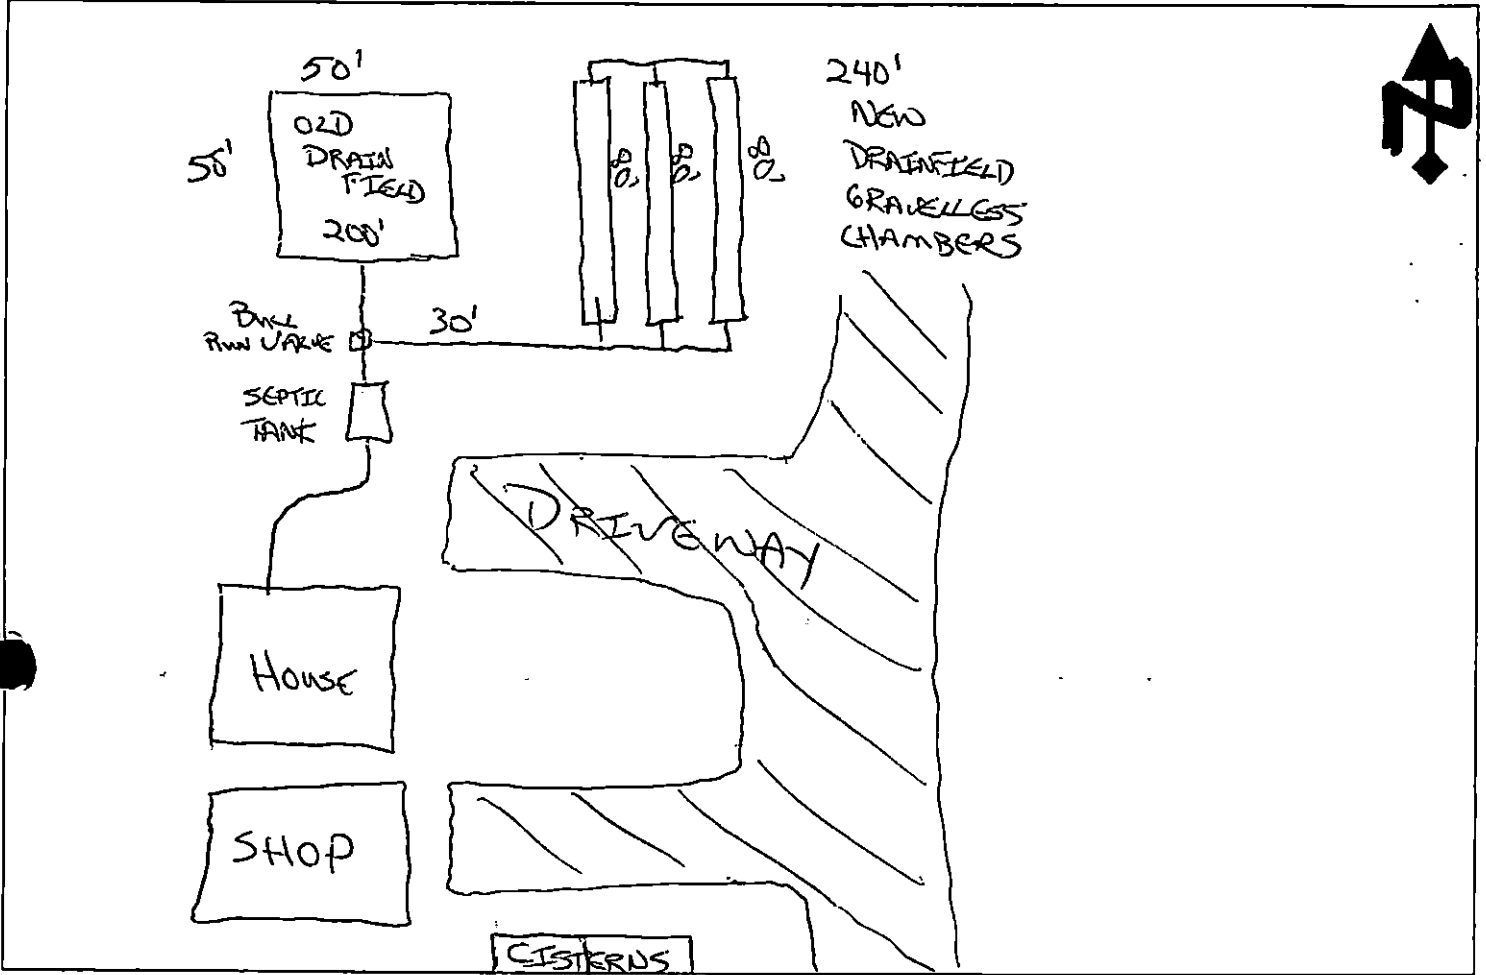 50'
OLD
DRAIN
FIELD
200'
50'
80'
80'
80'
240'
NEW
DRAINFIELD
GRAVELLESS
CHAMBERS
N
BULL
RUN VALVE
30'
SEPTIC
TANK
DRIVEWAY
HOUSE
SHOP
CISTERNS